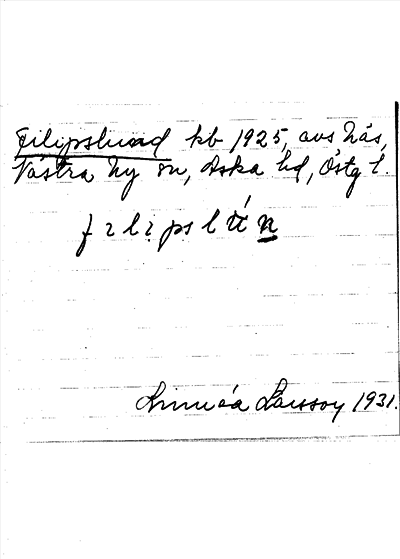 Filipslund kb 1925, avs Näs,
Västra Ny sn, Aska hd, Östg l.
Linnéa Larsson 1931.